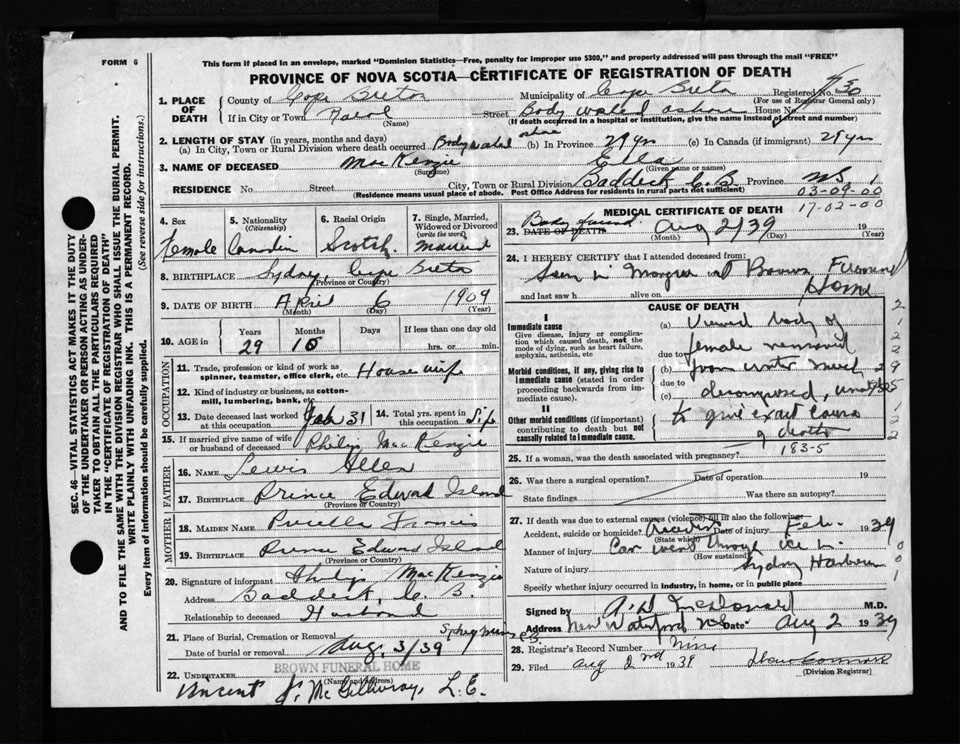 FORM 6
This form if placed in an envelope, marked "Dominion Statistics—Free, penalty for improper use $300," and properly addressed will pass through the mail "FREE"
PROVINCE OF NOVA SCOTIA—CERTIFICATE OF REGISTRATION OF DEATH
SEC. 46—VITAL STATISTICS ACT MAKES IT THE DUTY OF THE UNDERTAKER OR PERSON ACTING AS UNDERTAKER TO OBTAIN ALL THE PARTICULARS REQUIRED IN THE "CERTIFICATE OF REGISTRATION OF DEATH"
AND TO FILE THE SAME WITH THE DIVISION REGISTRAR WHO SHALL ISSUE THE BURIAL PERMIT.
WRITE PLAINLY WITH UNFADING INK. THIS IS A PERMANENT RECORD.
Every item of information should be carefully supplied. (See reverse side for instructions.)
1. PLACE OF DEATH
County of Cape Breton Municipality of Cape Breton Registered No. 30
(For use of Registrar General only)
If in City or Town (Name) Street Body washed ashore House No.
(If death occurred in a hospital or institution, give the name instead of street and number)
2. LENGTH OF STAY (in years, months and days)
(a) In City, Town or Rural Division where death occurred Body washed ashore (b) In Province 29 yrs (c) In Canada (if immigrant) 29 yrs
3. NAME OF DECEASED MacKenzie (Surname) Ella (Given name or names)
RESIDENCE No. Street City, Town or Rural Division Baddeck C.B. Province N.S.
(Residence means usual place of abode. Post Office Address for residents in rural parts not sufficient)
03-09-00
17-02-00
4. Sex Female
5. Nationality (Citizenship) Canadian
6. Racial Origin Scotch
7. Single, Married, Widowed or Divorced (write the word) Married
8. BIRTHPLACE Sydney, Cape Breton
(Province or Country)
9. DATE OF BIRTH April 6 1909
(Month) (Day) (Year)
10. AGE in Years 29 Months 10 Days If less than one day old hrs. or min.
OCCUPATION
11. Trade, profession or kind of work as spinner, teamster, office clerk, etc. House wife
12. Kind of industry or business, as cotton-mill, lumbering, bank, etc.
13. Date deceased last worked at this occupation Feb 31
14. Total yrs. spent in this occupation Life
15. If married give name of wife or husband of deceased Philip MacKenzie
FATHER
16. NAME Lewis Allen
17. BIRTHPLACE Prince Edward Island
(Province or Country)
MOTHER
18. MAIDEN NAME Francis
19. BIRTHPLACE Prince Edward Island
(Province or Country)
20. Signature of informant Philip MacKenzie
Address Baddeck, C. B.
Relationship to deceased Husband
21. Place of Burial, Cremation or Removal
Date of burial or removal Aug. 3/39
BROWN FUNERAL HOME
22. UNDERTAKER (Name and Address)
Vincent J. McGillivray, L.E.
MEDICAL CERTIFICATE OF DEATH
23. DATE OF DEATH Body found Aug 2/39 19
(Month) (Day) (Year)
24. I HEREBY CERTIFY that I attended deceased from:
Seen in Morgue at Browns Funeral Home
and last saw h alive on
CAUSE OF DEATH
I
Immediate cause
Give disease, injury or complication which caused death, not the mode of dying, such as heart failure, asphyxia, asthenia, etc
Morbid conditions, if any, giving rise to immediate cause (stated in order proceeding backwards from immediate cause).
II
Other morbid conditions (if important) contributing to death but not causally related to immediate cause.
(a) Viewed body of
due to female removed
(b) from water much
due to
(c) decomposed, unable
to give exact cause
of death
183-5
25. If a woman, was the death associated with pregnancy?
26. Was there a surgical operation? Date of operation 19
State findings Was there an autopsy?
27. If death was due to external causes (violence) fill in also the following:
Accident, suicide or homicide? Accident (State which) Date of injury Feb. 1939
Manner of injury Car went through ice in
(How sustained)
Nature of injury Sydney Harbour
Specify whether injury occurred in industry, in home, or in public place
Signed by A. D. McDonald M.D.
Address New Waterford NS Date Aug 2 1939
28. Registrar's Record Number Nine
29. Filed Aug 2nd 1939
(Division Registrar)